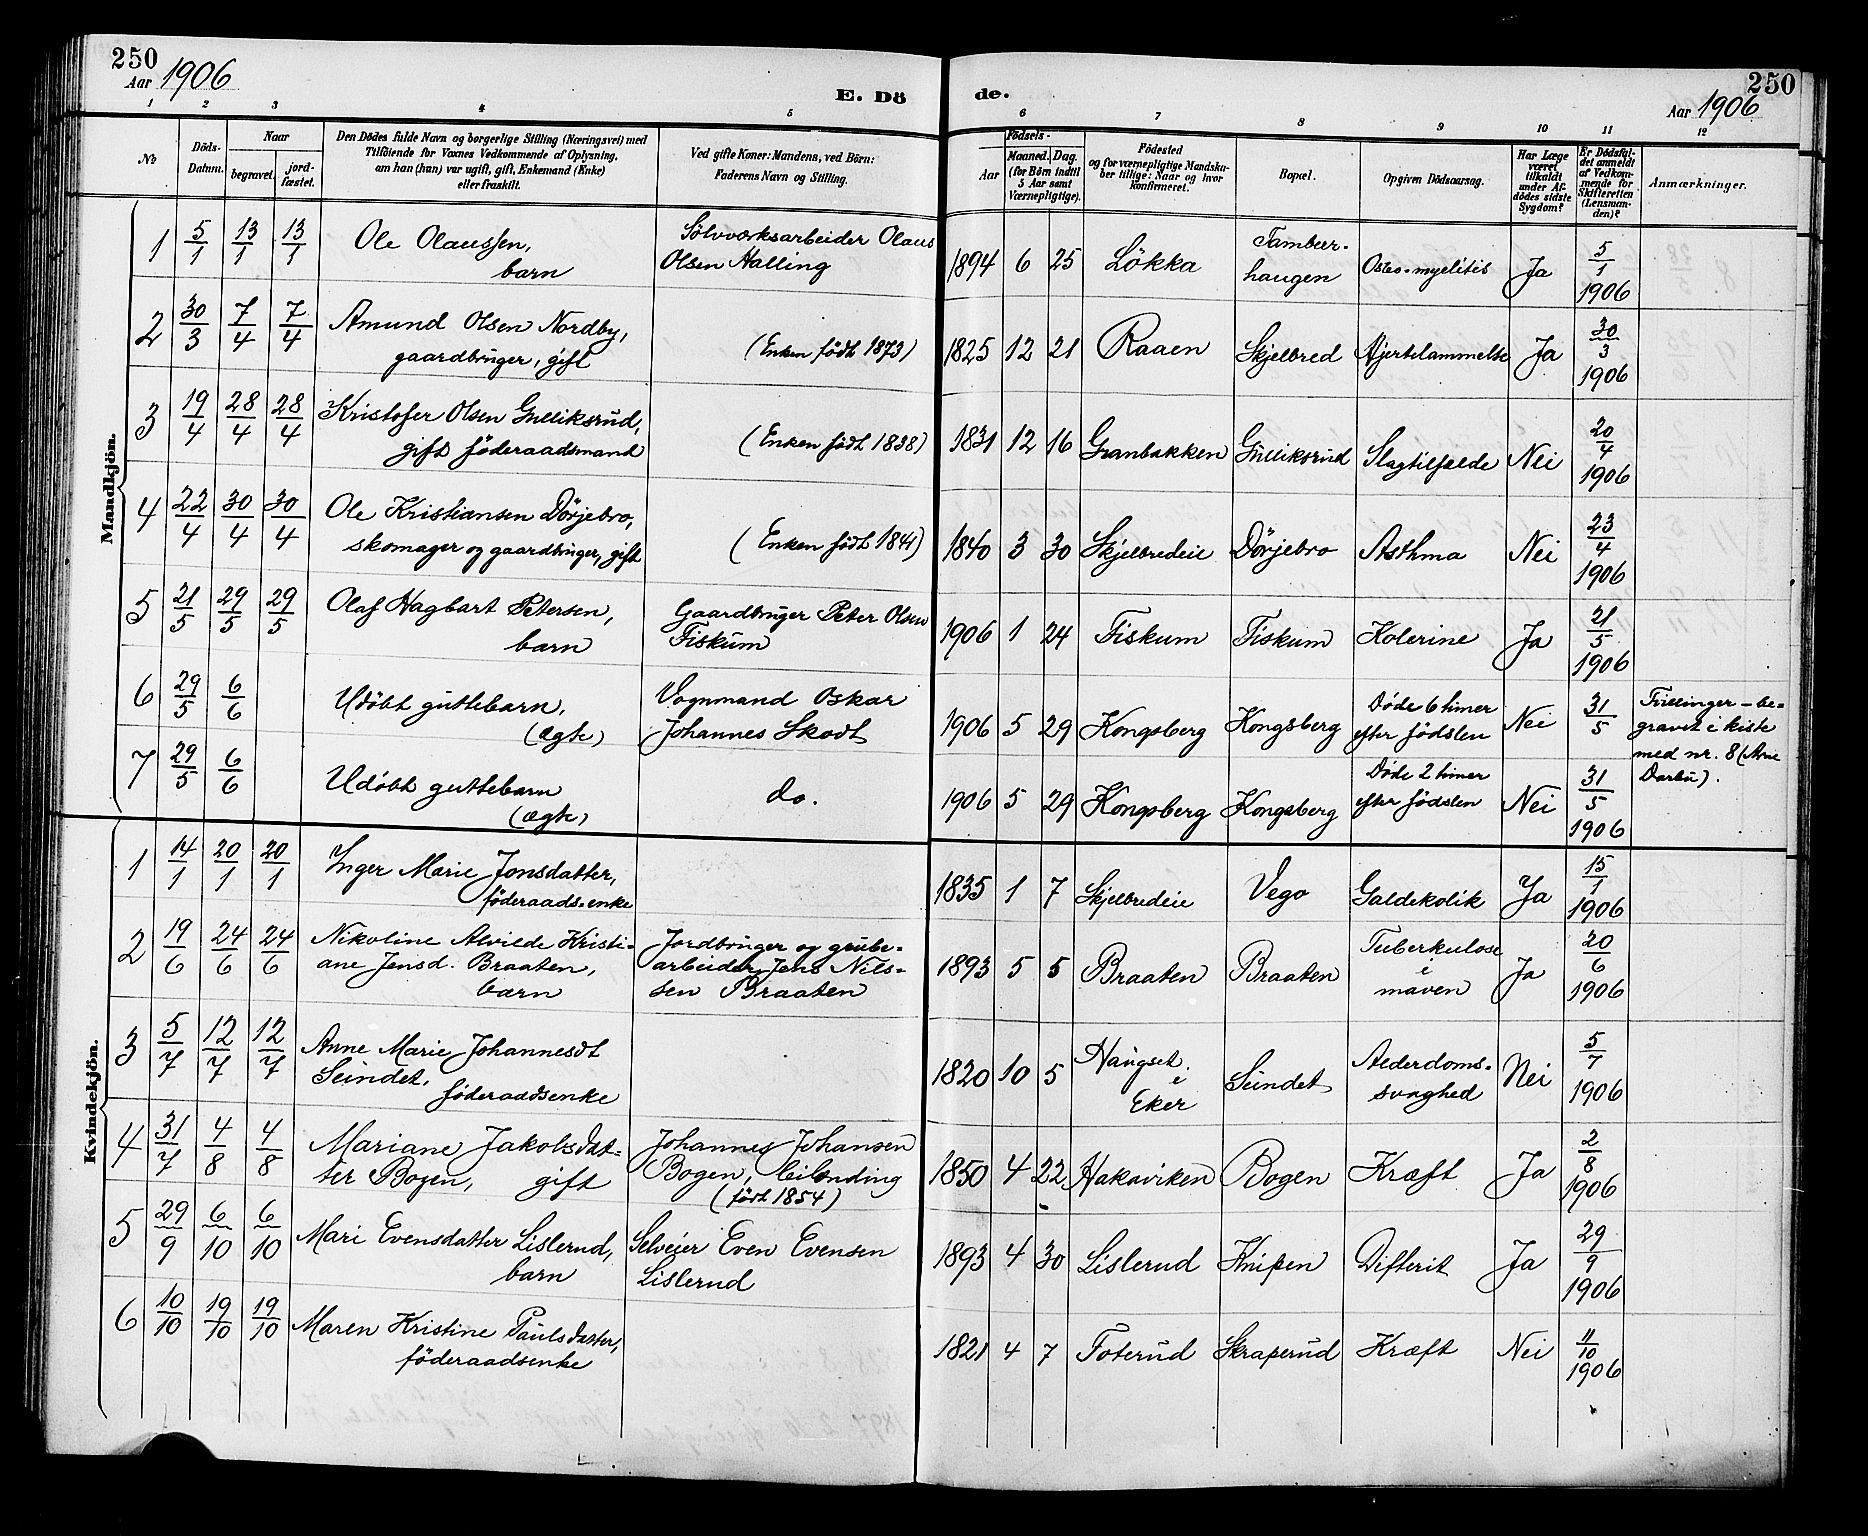 250
Aar 1906
E. Dö
de.
250
Aar 1906
1 2 3 4 5 6 7 8 9 10 11 12
No
Döds-
Datum.
Naar
begravet.
jord-
fæstet.
Den Dödes fulde Navn og borgerlige Stilling (Næringsvei) med
Tilföiende for Voxnes Vedkommende af Oplysning,
om han (hun) var ugift, gift, Enkemand (Enke)
eller fraskilt.
Ved gifte Koner: Mandens, ved Börn:
Faderens Navn og Stilling.
Födsels-
Aar
Maaned. Dag.
(for Börn indtil
5 Aar samt
Værnepligtige).
Födested
og for værnepligtige Mandska-
ber tillige: Naar og hvor
konfirmeret.
Bopæl.
Opgiven Dödsaarsag.
Har Læge
været
tilkaldt
under Af-
dödes sidste
Sygdom?
Er Dödsfal-
det anmeldt
af Vedkom-
mende for
Skifteretten
(Lensman-
den)?
Anmærkninger.
Mandkjön.
1 5/1 13/1 13/1 Ole Olaussen,
barn
Sölvværksarbeider Olaus
Olsen Halling
1894 6 25 Lökka
Tambur-
haugen
Osteo-myelitis Ja 5/1 1906
2 30/3 7/4 7/4 Amund Olsen Nordby,
gaardbruger, gift
(Enken født 1873)
1825 12 21 Raaen Skjelbred Hjertelammelse Ja 30/3 1906
3 19/4 28/4 28/4 Kristofer Olsen Gulliksrud,
gift föderaadsmand
(Enken født 1838)
1831 12 16 Granbakken Gulliksrud Slagtilfælde Nei 20/4 1906
4 22/4 30/4 30/4 Ole Kristiansen Dörjebro,
skomager og gaardbruger, gift
(Enken født 1841)
1840 3 30 Skjelbredeie Dörjebro Asthma Nei 23/4 1906
5 21/5 29/5 29/5 Olaf Hagbart Petersen,
barn
Gaardbruger Peter Olsen
Fiskum
1906 1 24 Fiskum Fiskum Kolerine Ja 21/5 1906
6 29/5 6/6 Udöbt guttebarn,
(ægte)
Vognmand Oskar
Johannes Skodt
1906 5 29 Kongsberg Kongsberg
Døde 6 timer
efter fødslen
Nei 31/5
Trillinger – be-
gravet i kiste
med nr. 8 (Arne
Darbu).
7 29/5 6/6 Udöbt guttebarn
(ægte)
do.
1906 5 29 Kongsberg Kongsberg
Døde 2 timer
efter fødslen
Nei 31/5 1906
Kvindekjön.
1 14/1 20/1 20/1 Inger Marie Jonsdatter,
föderaads.enke
1835 1 7 Skjelbredeie Vego Galdekolik Ja 15/1 1906
2 19/6 24/6 24/6 Nikoline Alvilde Kristi-
ane Jensd. Braaten,
barn
Jordbruger og grube-
arbeider Jens Nils-
sen Braaten
1893 5 5 Braaten Braaten
Tuberkulose
i
maven
Ja 20/6 1906
3 5/7 12/7 12/7 Anne Marie Johannesdt
Sundet,
föderaadsenke
1820 10 5 Haugset
i
Eker
Sundet
Alderdoms-
svaghed
Nei 5/7 1906
4 31/7 4/8 4/8 Mariane Jakobsdat-
ter Bogen, gift
Johannes Johansen
Bogen, leilending
(født 1854)
1850 4 22 Hakaviken Bogen Kræft Ja 2/8 1906
5 29/9 6/10 6/10 Mari Evensdatter Lislerud,
barn
Selveier Even Evensen
Lislerud
1893 4 30 Lislerud Knipen Difterit Ja 29/9 1906
6 10/10 19/10 19/10 Maren Kristine Paulsdatter,
föderaadsenke
1821 4 7 Foterud Skraperud Kræft Nei 11/10 1906